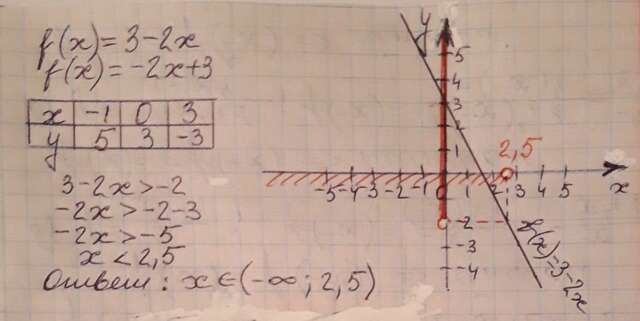 f(x)=3-2x
f(x)=-2x+3
x -1 0 3
y 5 3 -3
3-2x>-2
-2x>-2-3
-2x>-5
x<2,5
Ответ: x∈(-∞; 2,5)
y
5
4
3
2
1
2,5
-5 -4 -3 -2 -1 0 1 2 3 4 5
x
-2
-3
-4
f(x)=3-2x